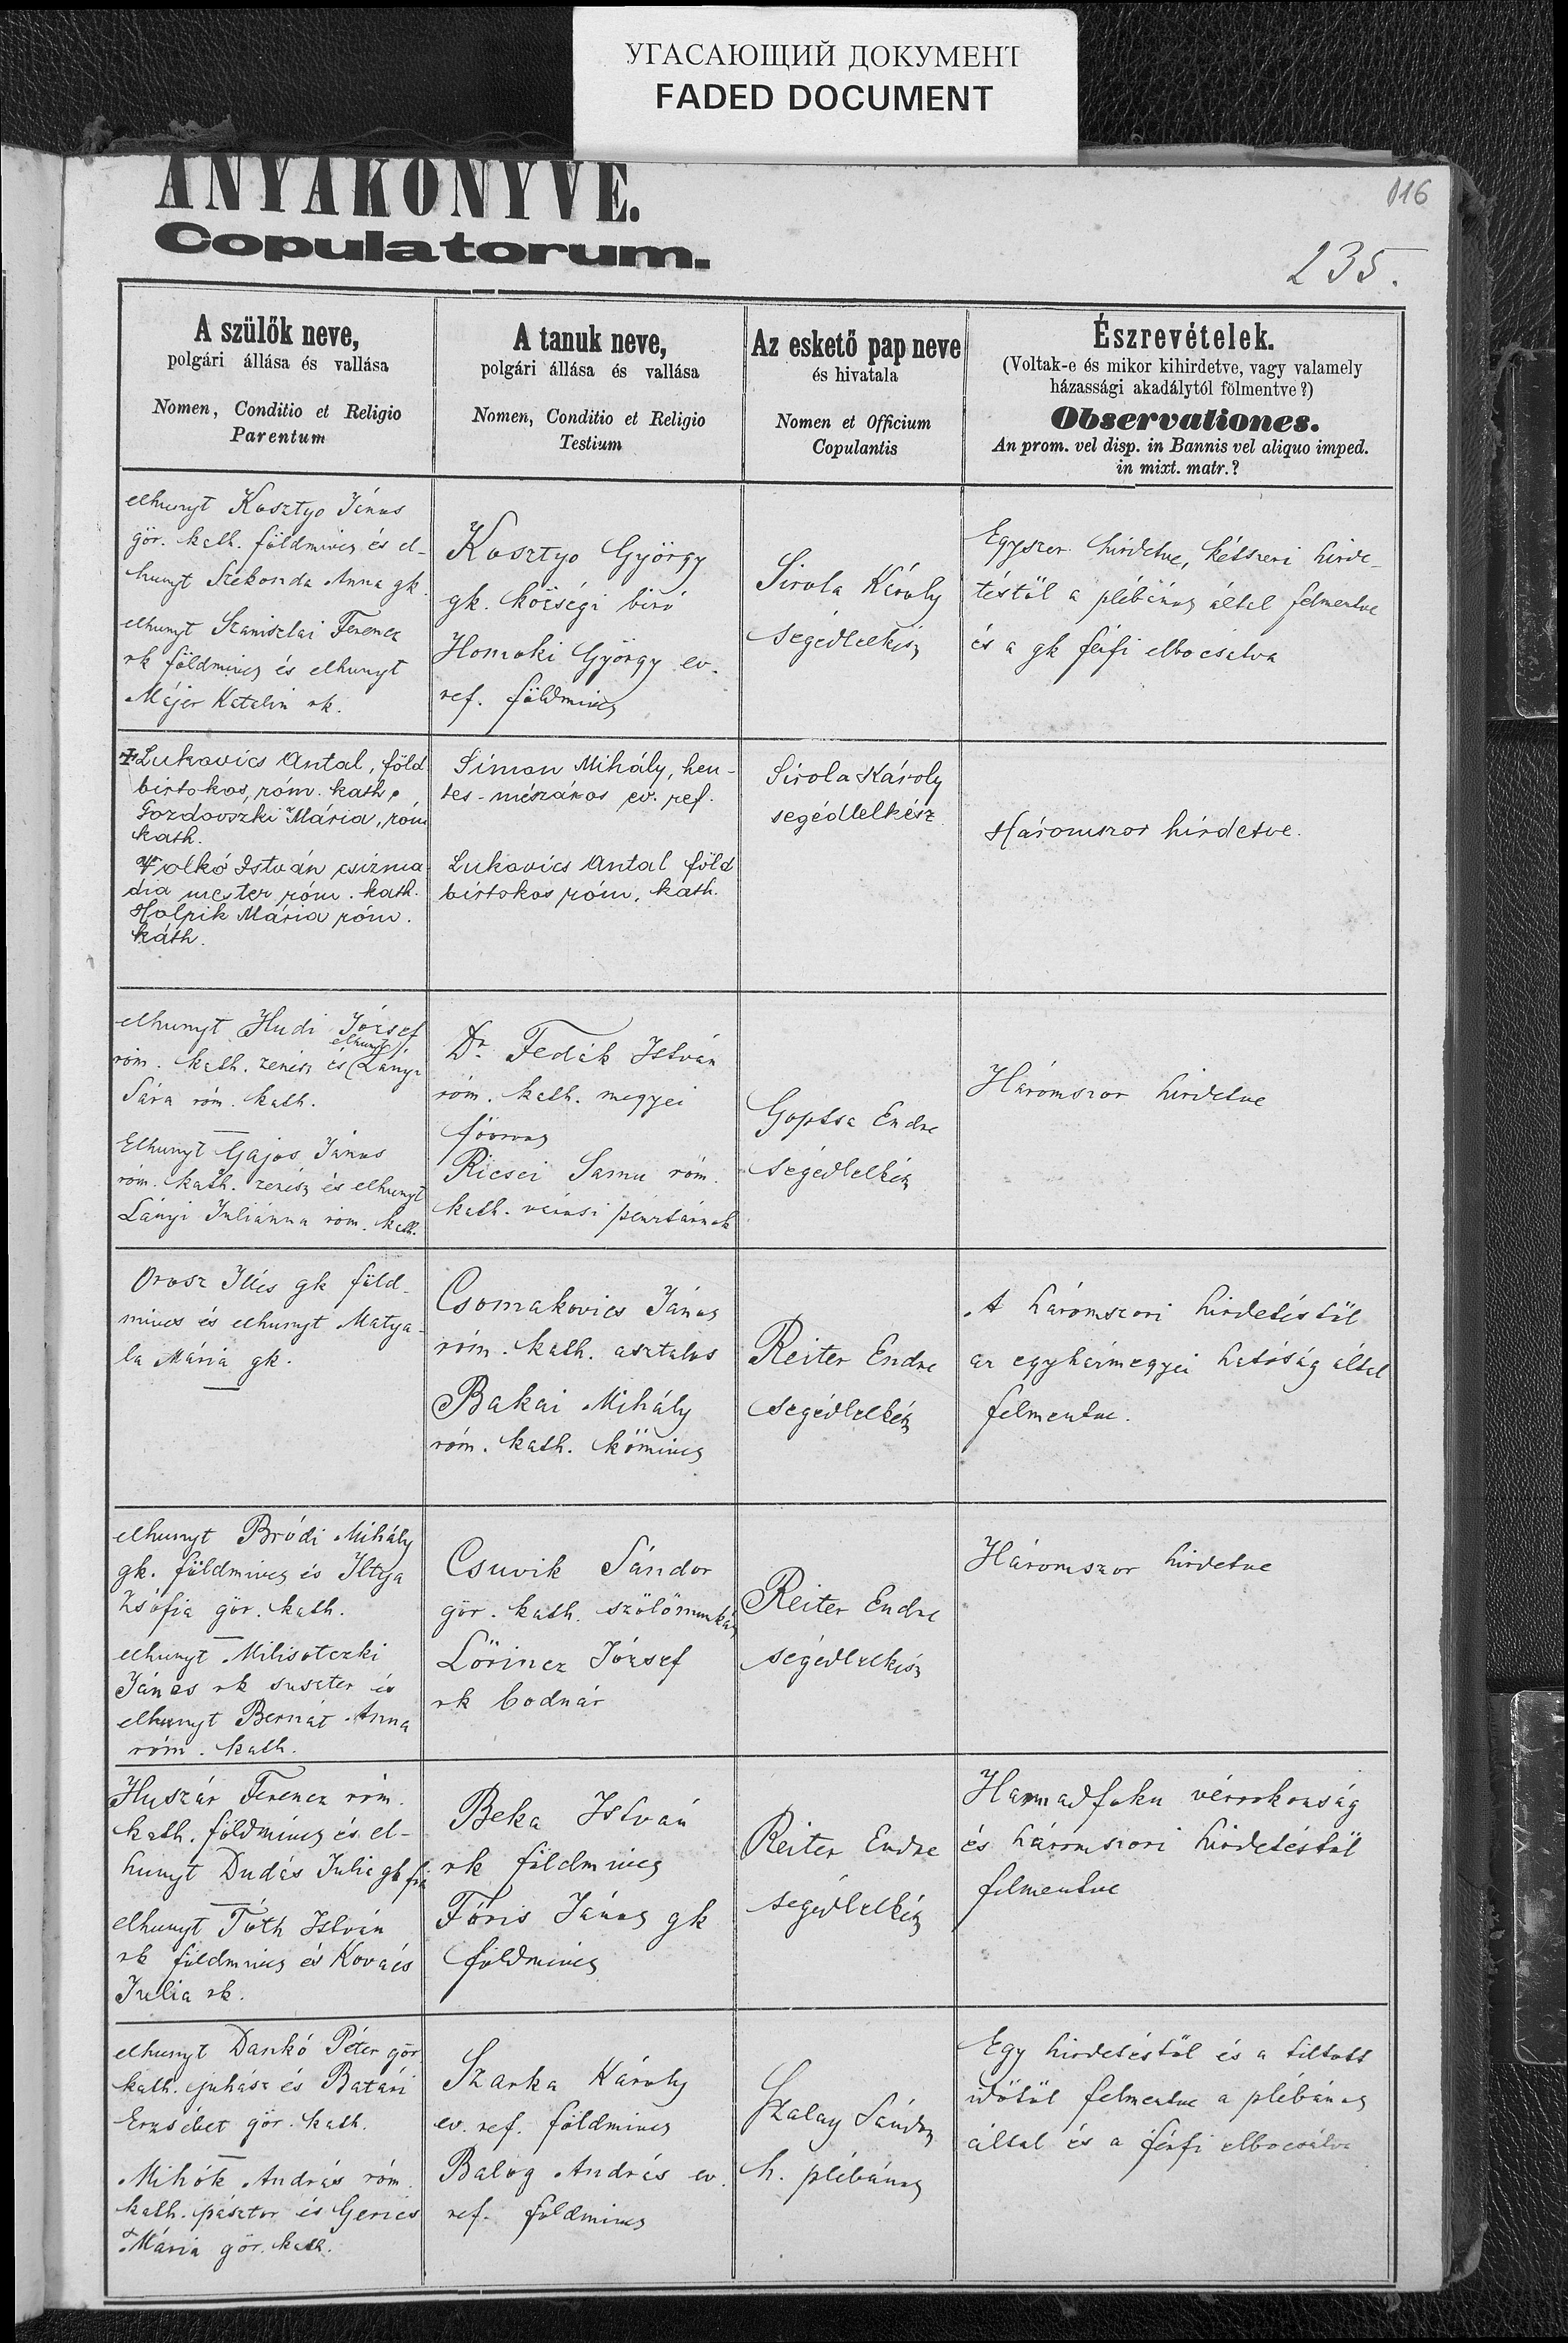 УГАСАЮЩИЙ ДОКУМЕНТ
FADED DOCUMENT
ANYAKÖNYVE.
Copulatorum.
116
235.
A szülők neve,
polgári állása és vallása
Nomen, Conditio et Religio
Parentum
A tanuk neve,
polgári állása és vallása
Nomen, Conditio et Religio
Testium
Az eskető pap neve
és hivatala
Nomen et Officium
Copulantis
Észrevételek.
(Voltak-e és mikor kihirdetve, vagy valamely
házassági akadálytól fölmentve?)
Observationes.
An prom. vel disp. in Bannis vel aliquo imped.
in mixt. matr.?
elhunyt Kosztyo János
gör. kath. földmives és el-
hunyt Szekonda Anna gk.
elhunyt Stanisztai Ferencz
rk földmives és elhunyt
Májer Katalin rk.
Kosztyo György
gk. községi biró
Homoki György ev.
ref. földmives
Sirola Károly
segédlelkész
Egyszer hirdetve, kétszeri hirde-
téstől a plébános által felmentve
és a gk férfi elbocsátva
Lukovics Antal, föld
birtokos, róm. kath.
Gozdovszki Mária, róm
kath.
Volkó István csizma
dia mester róm. kath.
Holpik Mária róm.
káth.
Simon Mihály, hen-
tes-mészáros ev. ref.
Lukovics Antal föld
birtokos róm. kath.
Sirola Károly
segédlelkész
Háromszor hirdetve.
elhunyt Hudi József
róm. kath. zenész és (elhunyt) Lányi
Sára róm. kath.
Elhunyt Gajos János
róm. kath. zenész és elhunyt
Lányi Juliánna róm. kath.
Dr. Fedák István
róm. kath. megyei
főorvos
Ricsei Samu róm.
kath. városi pénztárnok
Goptsa Endre
segédlelkész
Háromszor hirdetve
Orosz Illés gk föld-
mives és elhunyt Matya-
la Mária gk.
Csomakovics János
róm. kath. asztalos
Bakai Mihály
róm. kath. kőmives
Reiter Endre
segédlelkész
A háromszori hirdetéstől
az egyházmegyei hatóság által
felmentve.
elhunyt Bródi Mihály
gk. földmives és Iltya
Zsófia gör. kath.
elhunyt Milisotczki
János rk suszter és
elhunyt Bernát Anna
róm. kath.
Csuvik Sándor
gör. kath. szőlőmunkás
Lőrincz József
rk bodnár
Reiter Endre
segédlelkész
Háromszor hirdetve
Huszár Ferencz róm.
kath. földmives és el-
hunyt Dudás Julia gk fia
elhunyt Tóth István
rk földmives és Kovács
Julia rk.
Beka István
rk földmives
Fóris János gk
földmives
Reiter Endre
segédlelkész
Harmadfoku vérrokonság
és háromszori hirdetéstől
felmentve
elhunyt Dankó Péter gör
kath. juhász és Batári
Erzsébet gör. kath.
Mihók András róm.
kath. pásztor és Gerics
Mária gör. kath.
Szarka Károly
ev. ref. földmives
Balog András ev.
ref. földmives
Szalay Sándor
h. plébános
Egy hirdetéstől és a tiltott
időtől felmentve a plébános
által és a férfi elbocsátva